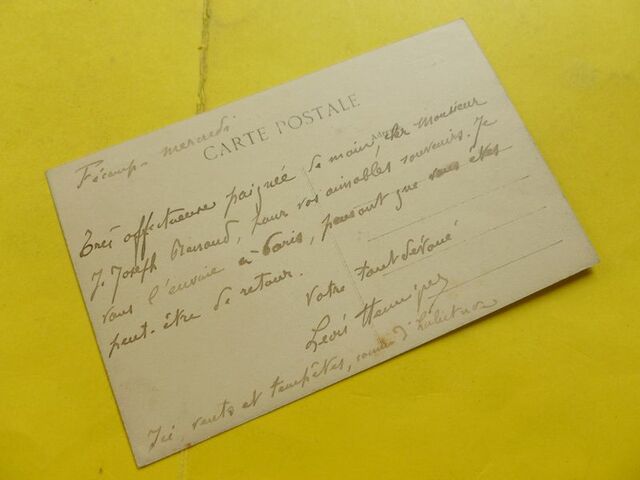 Fécamp - mercredi
CARTE POSTALE
Très affectueuse poignée de main, cher Monsieur
J. Joseph Renaud, pour vos aimables souvenirs. Je
vous l'envoie à Paris, pensant que vous êtes
peut-être de retour.
Votre tout dévoué
Léon
Ici, vents et tempêtes, comme d'habitude